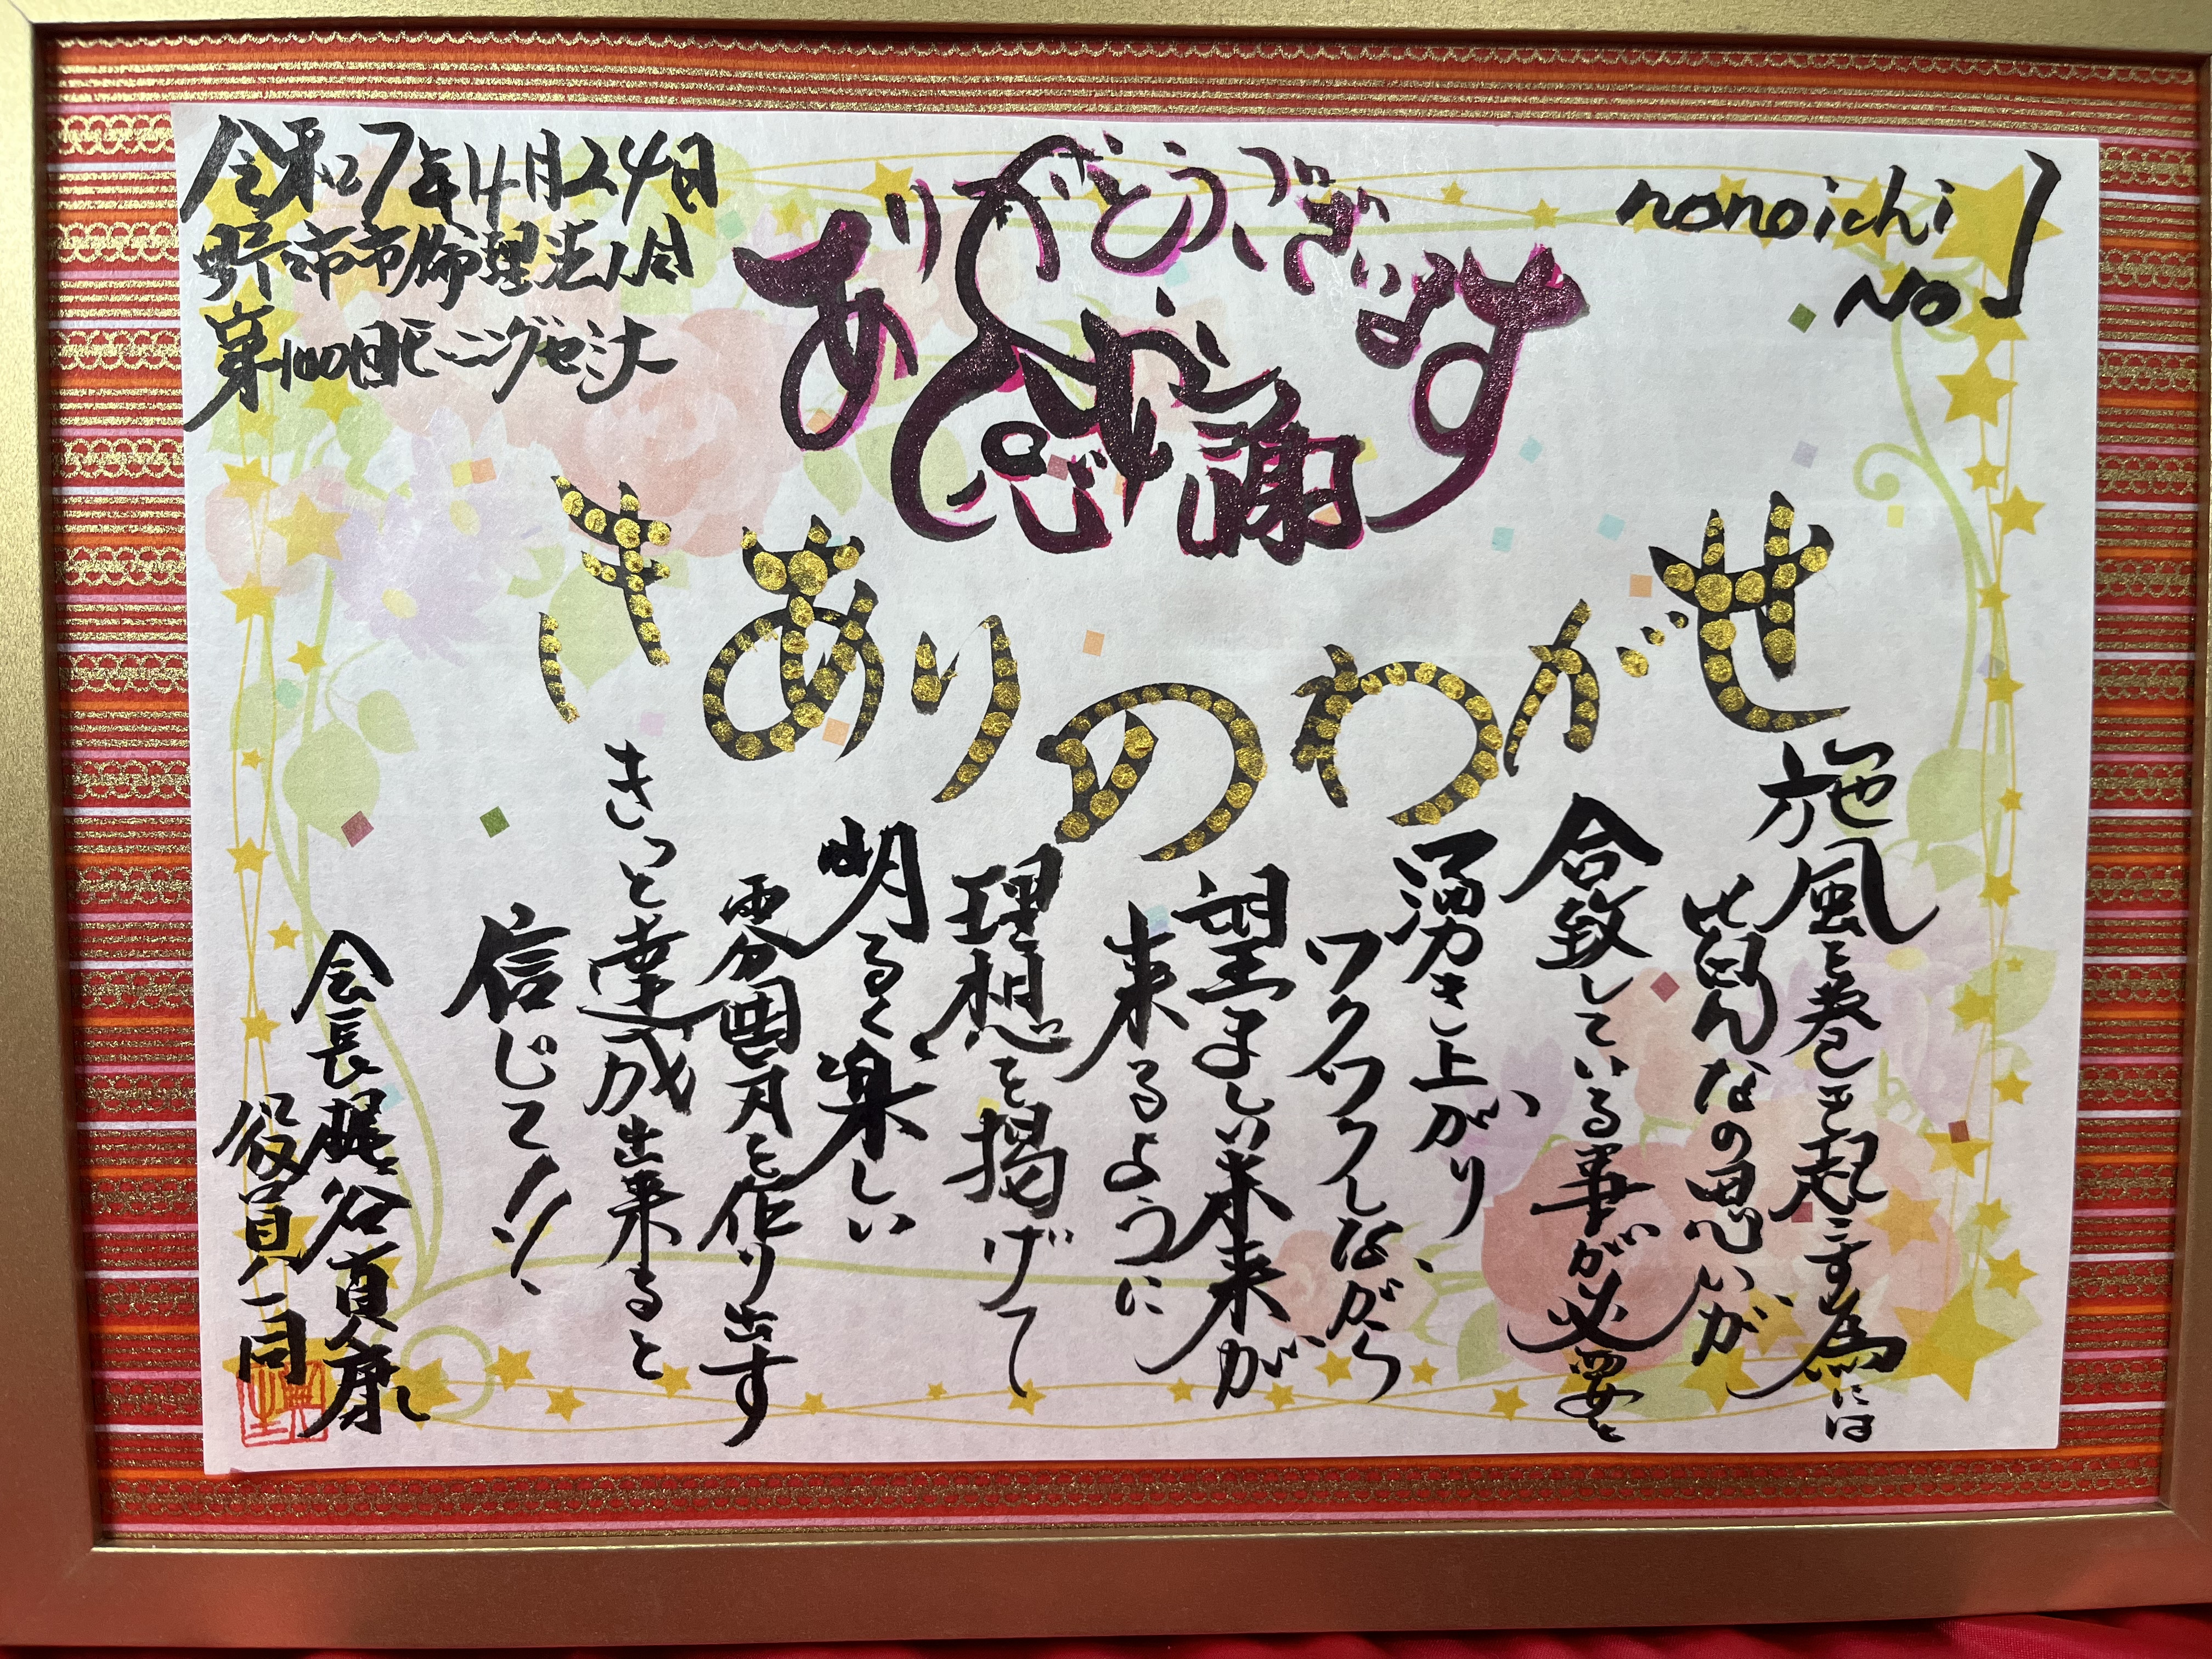 nonoichi
No 1
ありがとうございます
感謝
令和7年4月24日
野々市市倫理法人会
第100回モーニングセミナー
せがわのりあき
施風を巻き起こす為には
皆んなの思いが
合致している事が必要と
湧き上がり、
ワクワクしながら
望ましい未来が
来るように
理想を掲げて
明るく楽しい
雰囲気を作り出す
きっと達成出来ると
信じて!!
会長梶谷直康
役員一同